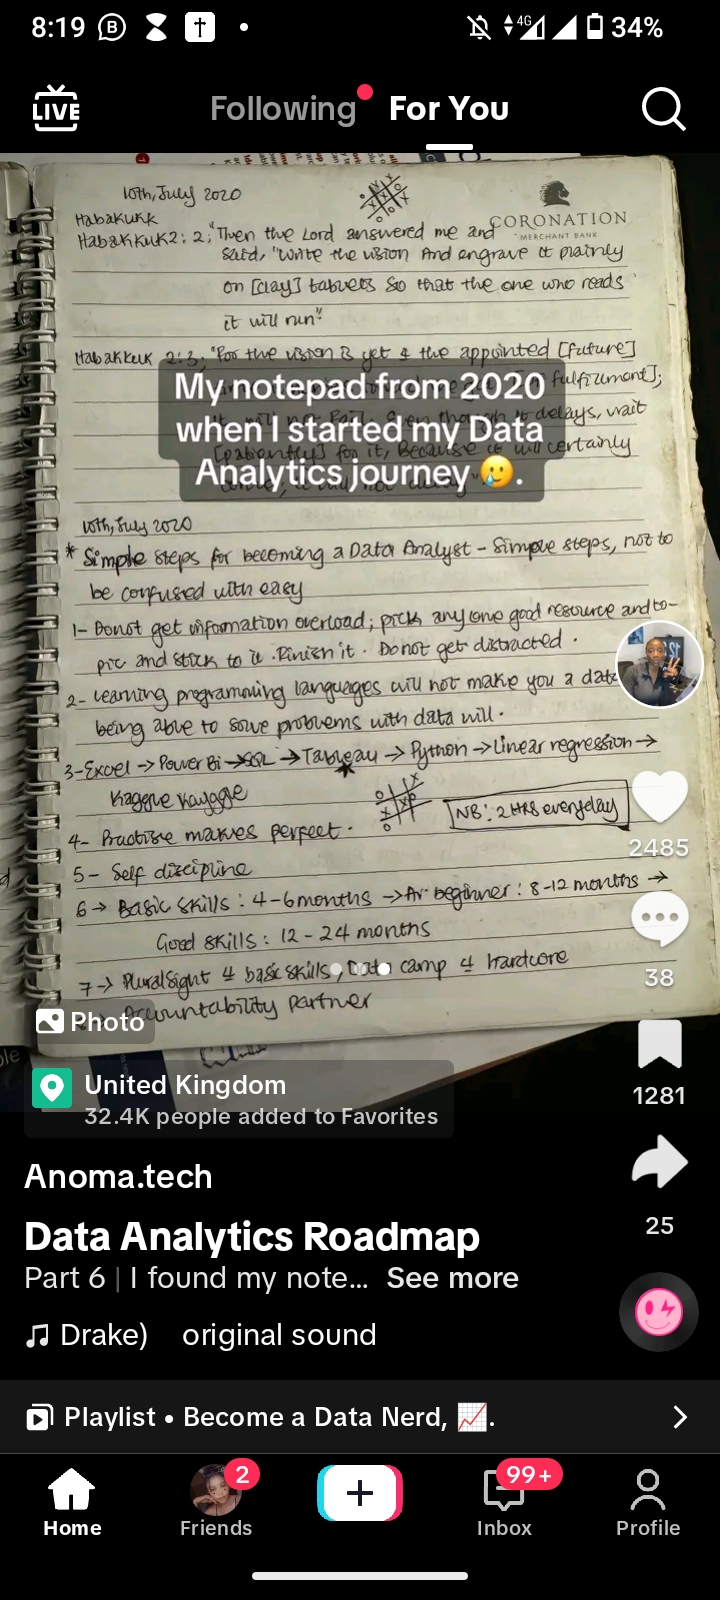 8:19
4G
34%
LIVE
Following
For You
10th, July 2020
CORONATION
MERCHANT BANK
Habakukk
Habakkuk 2: 2; "Then the Lord answered me and
said, "Write the vision And engrave it plainly
on [clay] tablets so that the one who reads
it will run"
Habakkuk 2:3; "For the vision is yet 4 the appointed [future]
fulfillment];
delays, wait
[patiently] for it, Because it will certainly
My notepad from 2020
when I started my Data
Analytics journey 🥲.
10th, July 2020
* Simple steps for becoming a Data Analyst - Simple steps, not to
be confused with easy
1- Do not get information overload; pick any one good resource and to-
pic and stick to it. Finish it. Do not get distracted.
2- Learning programming languages will not make you a data
being able to solve problems with data will.
3-Excel → Power Bi → SQL → Tableau → Python → Linear regression →
Kaggle Kayggle
NB: 2 HRS everyday
4- Practise makes perfect.
5- Self discipline
6 → Basic skills: 4-6 months → beginner: 8-12 months →
Good skills: 12 - 24 months
7 → Pluralsight 4 basic skills, Data camp 4 hardcore
Accountability partner
Photo
United Kingdom
32.4K people added to Favorites
2485
38
1281
25
Anoma.tech
Data Analytics Roadmap
Part 6 | I found my note... See more
Drake) original sound
Playlist • Become a Data Nerd, 📈.
2
99+
Home
Friends
Inbox
Profile